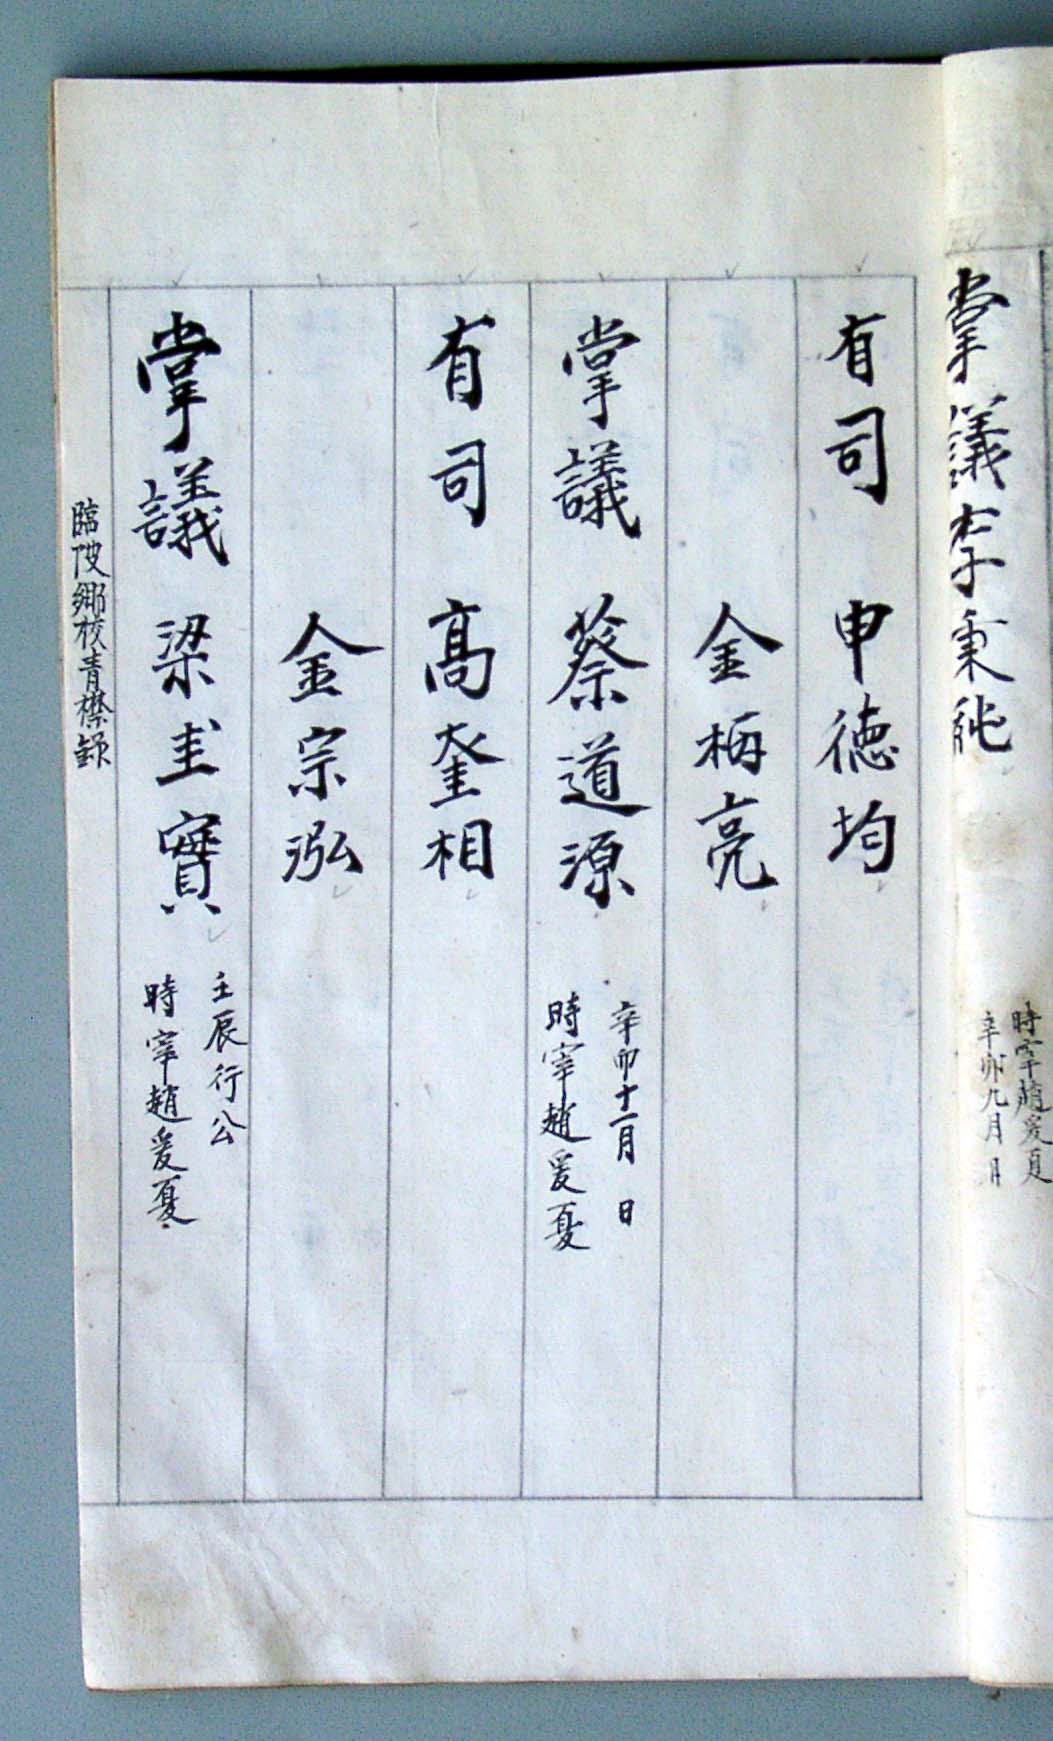 掌議李秉
時宰趙爰夏
辛卯九月 日
有司 申德均
金柄亮
掌議 蔡道源
辛卯十一月 日
時宰趙爰夏
有司 高奎相
金宗泓
掌議 梁圭寶
壬辰行公
時宰趙爰夏
臨陂鄉校青襟錄